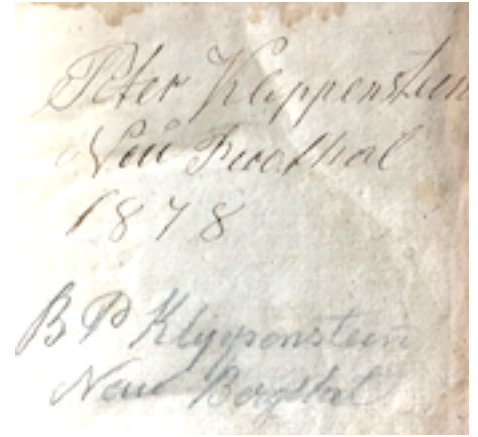 Peter Klippenstein
Neu
1878
B P Klipponstein
Neu Bergthal